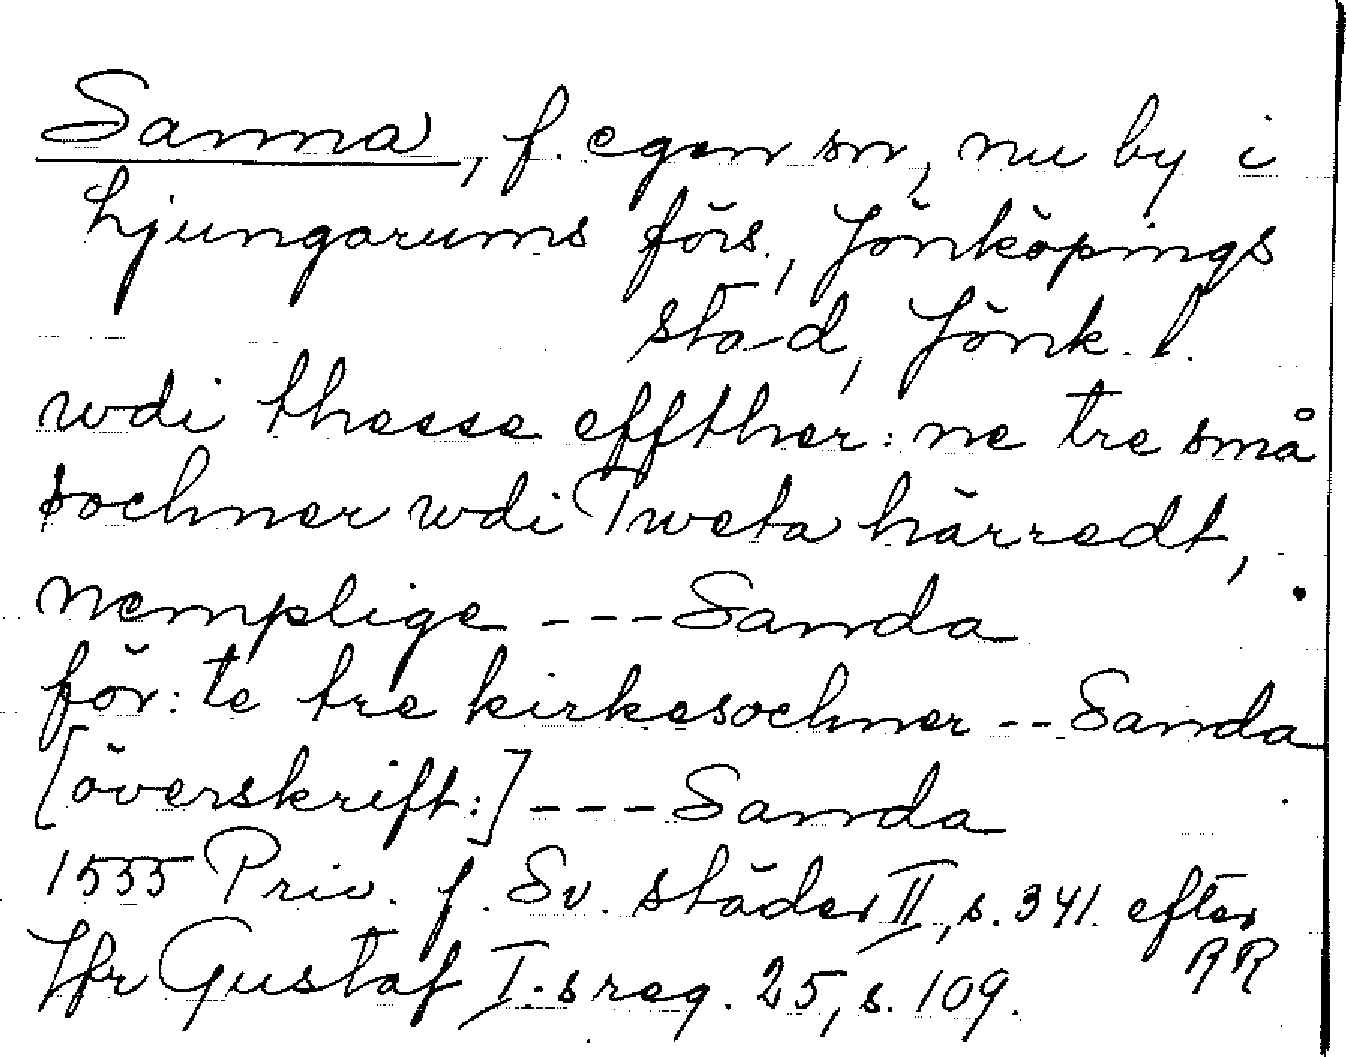 Sanna, f. egen sn, nu by i
Ljungarums förs., Jönköpings
stad, Jönk. l.
wdi thesse effther: ne tre små
sochner wdi Tweta härredt,
nemplige --- Sanda
för: te tre kirkesochner -- Sanda
[överskrift:] --- Sanda
1555 Priv. f. Sv. städer II, s. 341. efter
RR
Jfr Gustaf I:s reg. 25, s. 109.